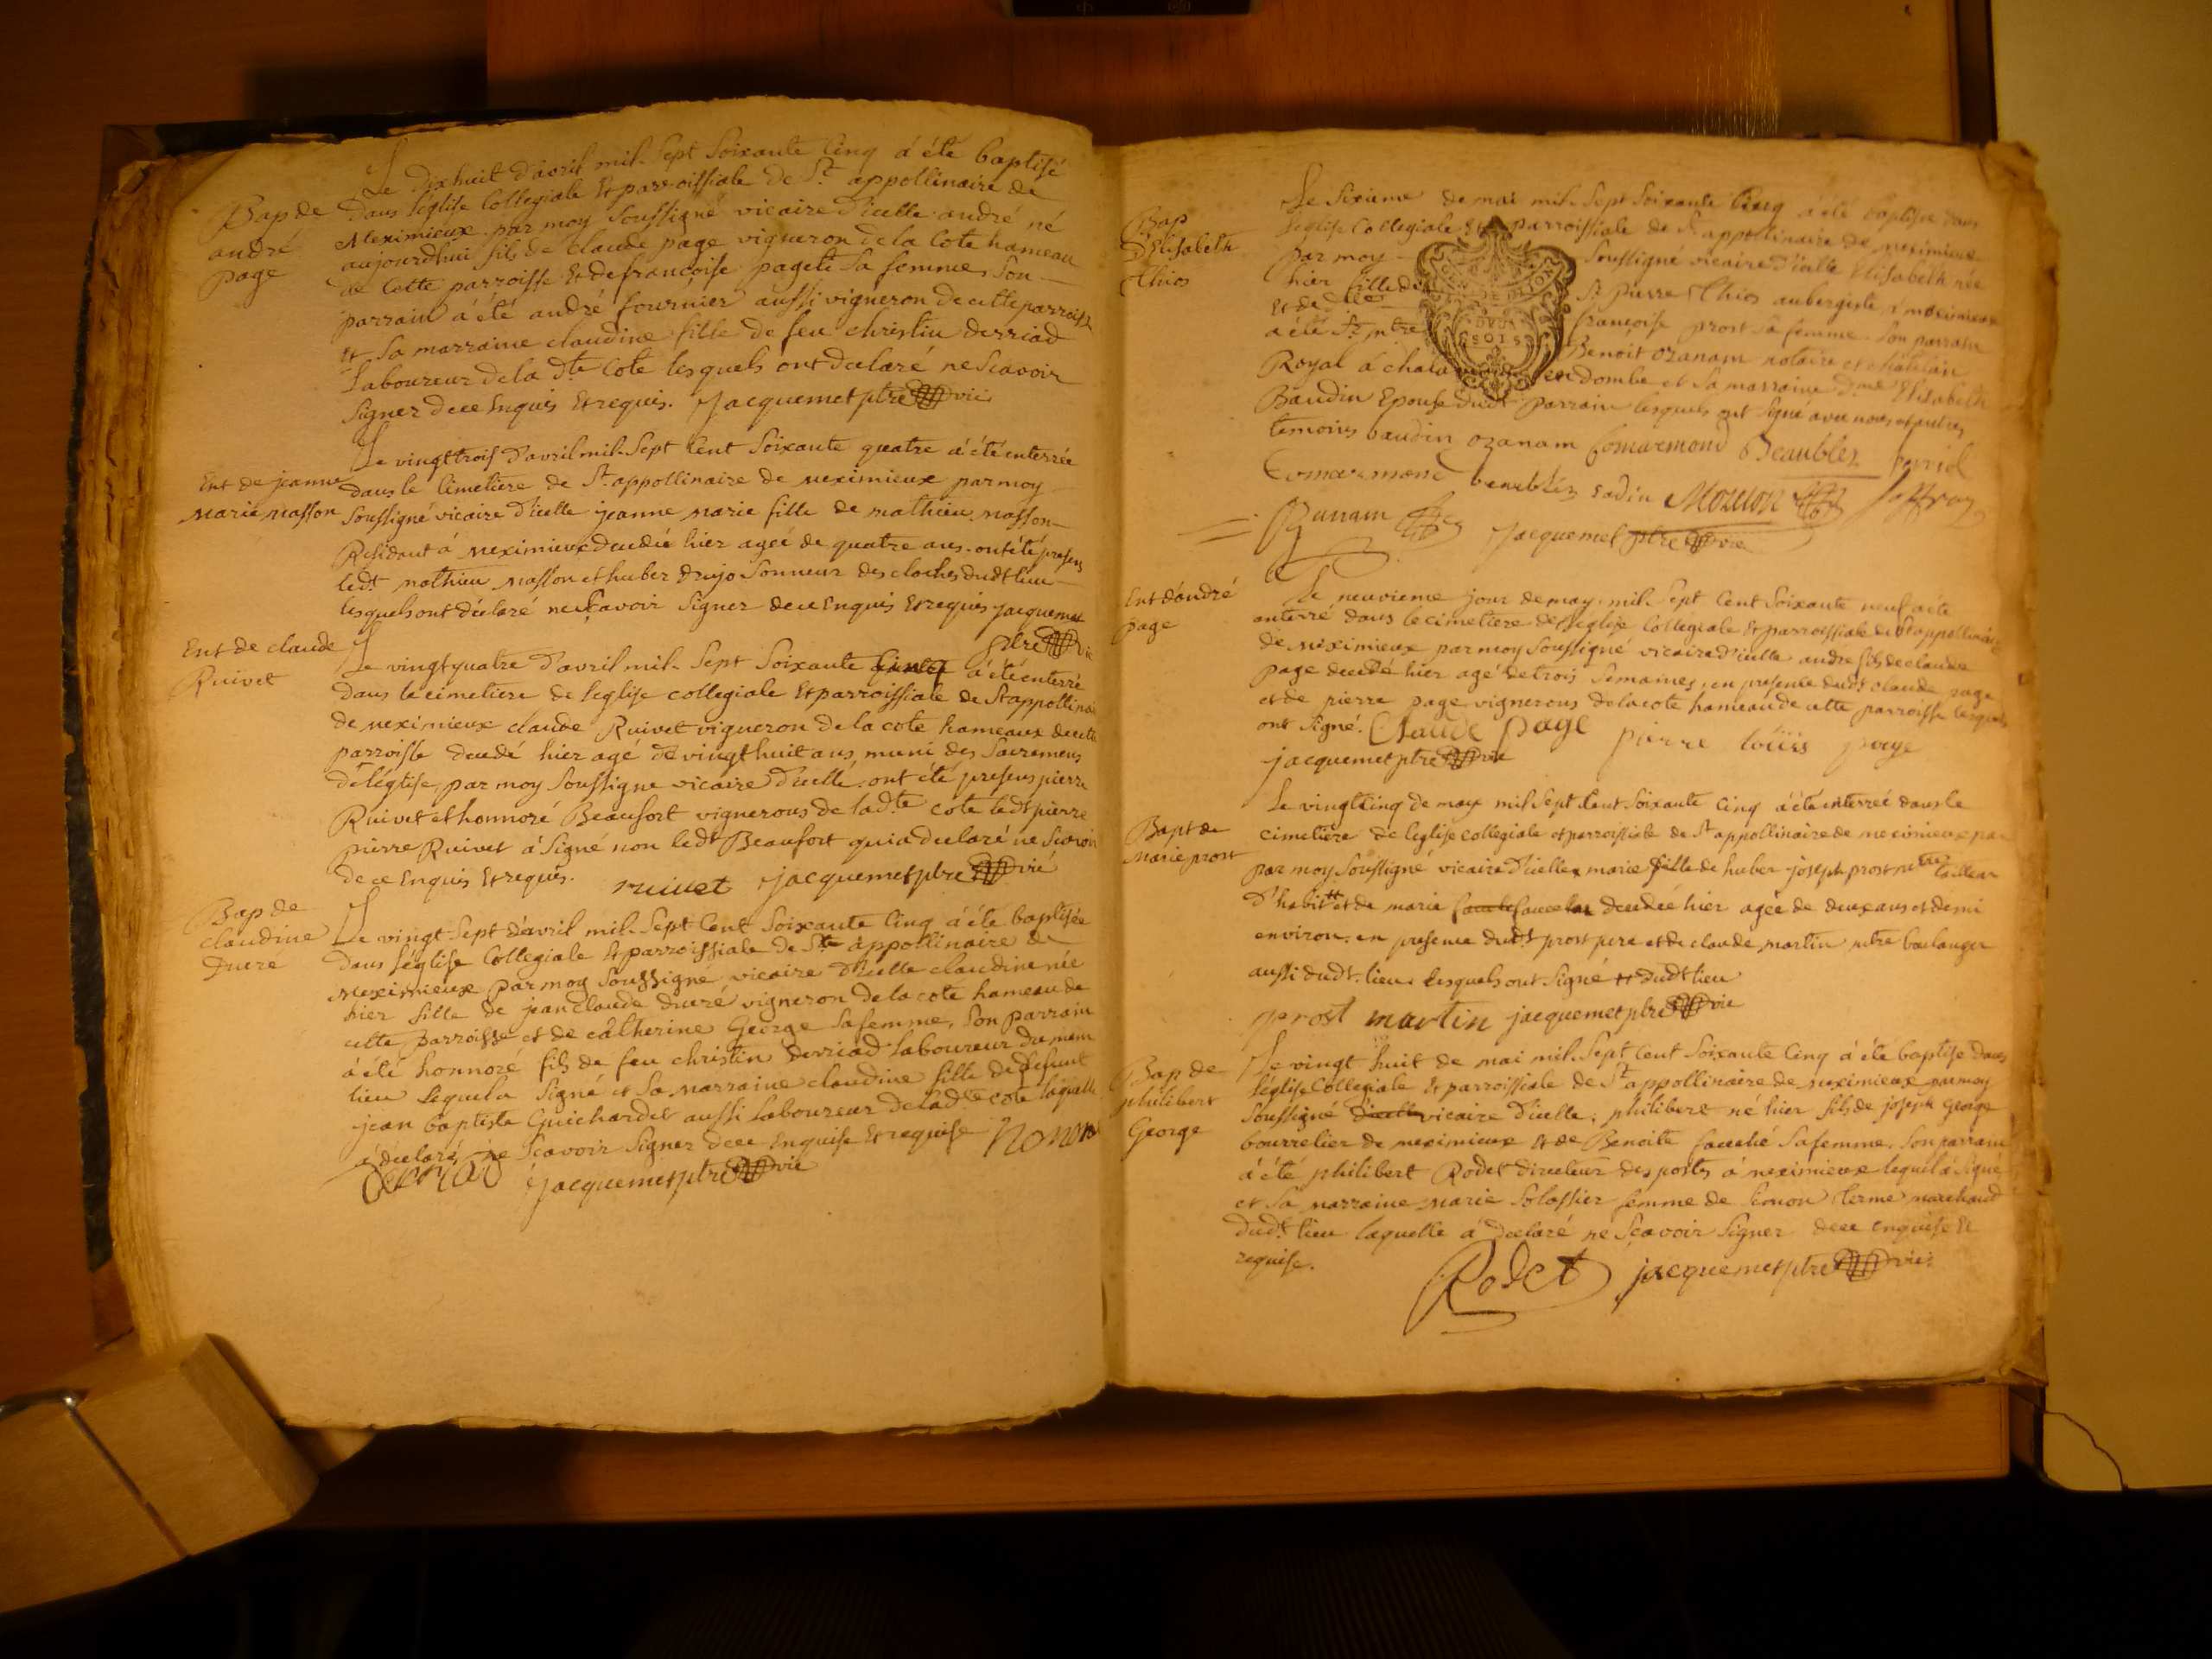 Le dixhuit d'avril mil-Sept Soixante Cinq á été baptisé
Bap de
andré
page
dans l'église Collegiale Et parroissiale de St appollinaire de
Meximieux par moy Soussigné vicaire d'icelle andré né
aujourdhui fils de claude page vigneron de la Cote hameau
de Cette parroisse Et de francoise pagete sa femme, Son
parrain á été andré fournier aussi vigneron de cette parroisse
et Sa marraine claudine fille de feu christin derriad
laboureur de la dte Cote lesquels ont declaré ne Scavoir
Signer de ce Enquis Et requis. Jacquemet ptre vic
Ent de jeanne
Marie Masson
Le vingttrois d'avril mil-Sept Cent Soixante quatre á été enterrée
dans le Cimetiere de St appollinaire de meximieux par moy
Soussigné vicaire d'icelle jeanne marie fille de mathieu masson
Residant á meximieux decedée hier ageé de quatre ans. ont été presens
ledt mathieu masson et huber drujo Sonneur des cloches dudt lieu
lesquels ont déclaré ne Scavoir Signer de ce Enquis Et requis jacquemet
ptre vic
Ent de claude
Ruivet
Le vingtquatre d'avril mil-Sept Soixante Cinq á été enterré
dans le cimetiere de l'eglise collegiale Et parroissiale de St appollinaire
de meximieux claude Ruivet vigneron de la cote hameaux de cette
parroisse decedé hier agé de vingt huit ans muni des Sacremens
de l'église, par moy Soussigne vicaire d'icelle. ont été presens pierre
Ruivet et honnoré Beaufort vignerons de la dte cote ledt pierre
pierre Ruivet á Signé non ledt Beaufort qui a declaré ne Scavoir
de ce Enquis Et requis. ruivet jacquemet ptre vic
Bap de
claudine
Ducré
Le vingt Sept d'avril mil-Sept Cent Soixante Cinq á été baptisée
dans l'église Collegiale Et parroissiale de Ste appollinaire de
Meximieux par moy Soussigné vicaire d'icelle claudine née
hier fille de jean claude ducré vigneron de la cote hameau de
cette parroisse et de câtherine George sa femme, Son parrain
á été honnoré fils de feu christin derriad laboureur du mem
lieu Lequel a Signé et Sa marraine claudine fille de defunt
jean baptiste Guichardet aussi laboureur de la dte cote laquelle
á declaré ne Scavoir Signer de ce Enquise Et requise honore
derriad jacquemet ptre vic
Bap
d'Elisabeth
Thios
Le Sixieme de mai mil-Sept Soixante Cinq á été baptisée dans
l'eglise Collegiale Et parroissiale de St appollinaire de meximieux
par moy Soussigné vicaire d'icelle Elisabeth née
hier fille de Sr pierre Thios aubergiste á meximieux
Et de dlle francoise prost sa femme. Son parrain
a été Sr mtre Benoit ozanam notaire et chatelain
Royal á chala en dombe et Sa marraine dme Elisabeth
Baudin Epouse dudt parrain lesquels ont signé avec nous et autres
temoins baudin ozanam Comarmond Beaublez
Comarmond beaublez sadin Mornon Jaffray
Ozanam Jacquemet ptre vic
Ent d'andré
page
Le neuvieme jour de may. mil-Sept Cent Soixante neuf a été
enterré dans le cimetiere de l'eglise Collegiale Et parroissiale de St appollinaire
de meximieux par moy Soussigné vicaire d'icelle andre fils de claude
page decedé hier agé de trois Semaines, en presence dudt claude page
et de pierre page vignerons de la cote hameau de cette parroisse lesquels
ont Signé. Claude page pierre loüis page
jacquemet ptre vic
Bapt de
Marie prost
Le vingtcinq de may mil Sept Cent Soixante Cinq á été enterreé dans le
cimetiere de l'eglise collegiale et parroissiale de St appollinaire de meximieux par
par moy Soussigné vicaire d'icelle marie fille de huber joseph prost mtre tailleur
d'habitt et de marie decedeé hier ageé de deux ans et demi
environ. en presence dudt prost pere et de claude martin mtre boulanger
aussi dudt lieu. lesquels ont Signé et dudt lieu
prost martin jacquemet ptre vic
Bap de
philibert
George
Le vingt huit de mai mil-Sept Cent Soixante Cinq á été baptisé dans
l'église Collegiale Et parroissiale de St appollinaire de meximieux par moy
Soussigné d'icelle vicaire d'icelle, philibert né hier fils de joseph George
bourrelier de meximieux Et de Benoite fauché sa femme, Son parrain
á été philibert Rodet directeur des postes á meximieux lequel á Signé
et Sa marraine Marie Solossier femme de Simon Terme marchand
dudt lieu laquelle á declaré ne Sçavoir Signer de ce enquise Et
requise.
Rodet jacquemet ptre vic